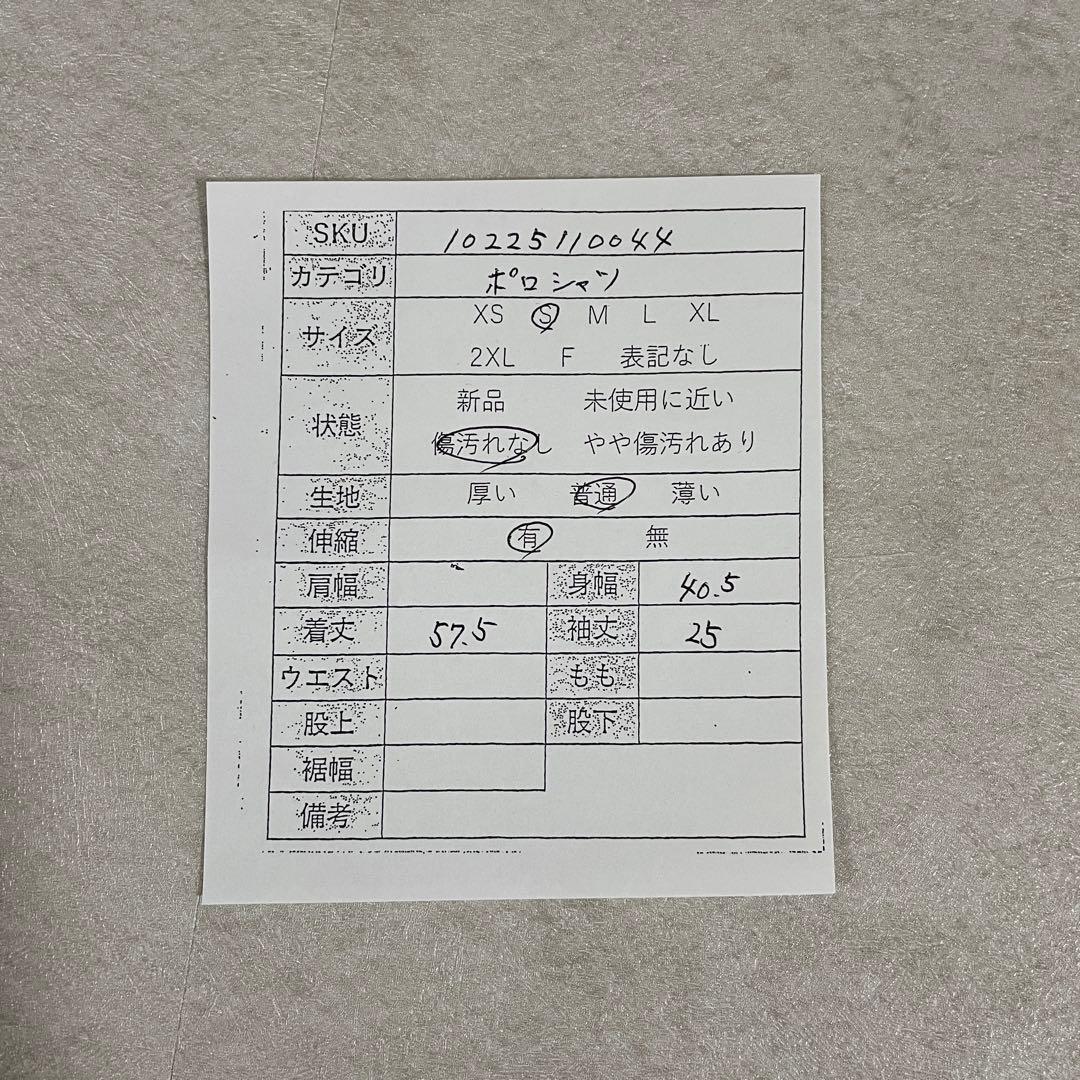 SKU 10225110044
カテゴリ ポロシャツ
サイズ XS S M L XL
2XL F 表記なし
状態 新品 未使用に近い
傷汚れなし やや傷汚れあり
生地 厚い 普通 薄い
伸縮 有 無
肩幅 身幅 40.5
着丈 57.5 袖丈 25
ウエスト もも
股上 股下
裾幅
備考